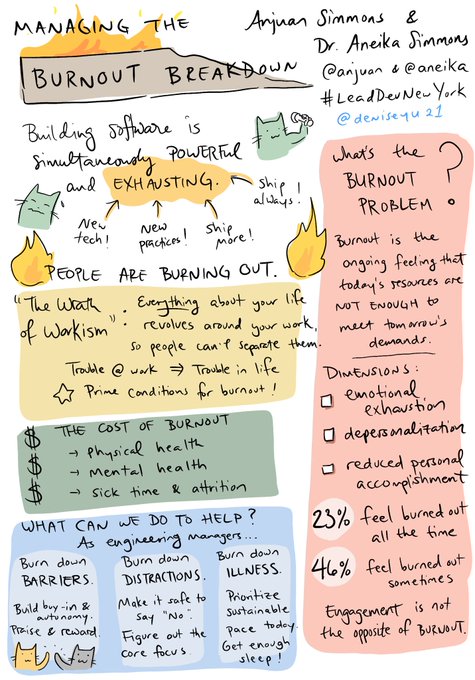 MANAGING THE
BURNOUT BREAKDOWN
Anjuan Simmons &
Dr. Aneika Simmons
@anjuan & @aneika
#LeadDevNewYork
@deniseyu21
Building software is
simultaneously POWERFUL
and EXHAUSTING.
New
tech!
New
practices!
Ship
more!
Ship
always!
PEOPLE ARE BURNING OUT.
"The Wrath
of Workism":
Everything about your life
revolves around your work,
so people can't separate them.
Trouble @ work ⇒ Trouble in life
☆ Prime conditions for burnout!
$ THE COST OF BURNOUT
$ → physical health
→ mental health
$ → sick time & attrition
WHAT CAN WE DO TO HELP?
As engineering managers...
Burn down
BARRIERS.
Build buy-in &
autonomy.
Praise & reward.
Burn down
DISTRACTIONS.
Make it safe to
say "No".
Figure out the
core focus.
Burn down
ILLNESS.
Prioritize
sustainable
pace today.
Get enough
sleep!
What's the
BURNOUT
PROBLEM?
Burnout is the
ongoing feeling that
today's resources are
NOT ENOUGH to
meet tomorrow's
demands.
DIMENSIONS:
emotional
exhaustion
depersonalization
reduced personal
accomplishment
23% feel burned out
all the time
46% feel burned out
sometimes
Engagement is not
the opposite of BURNOUT.